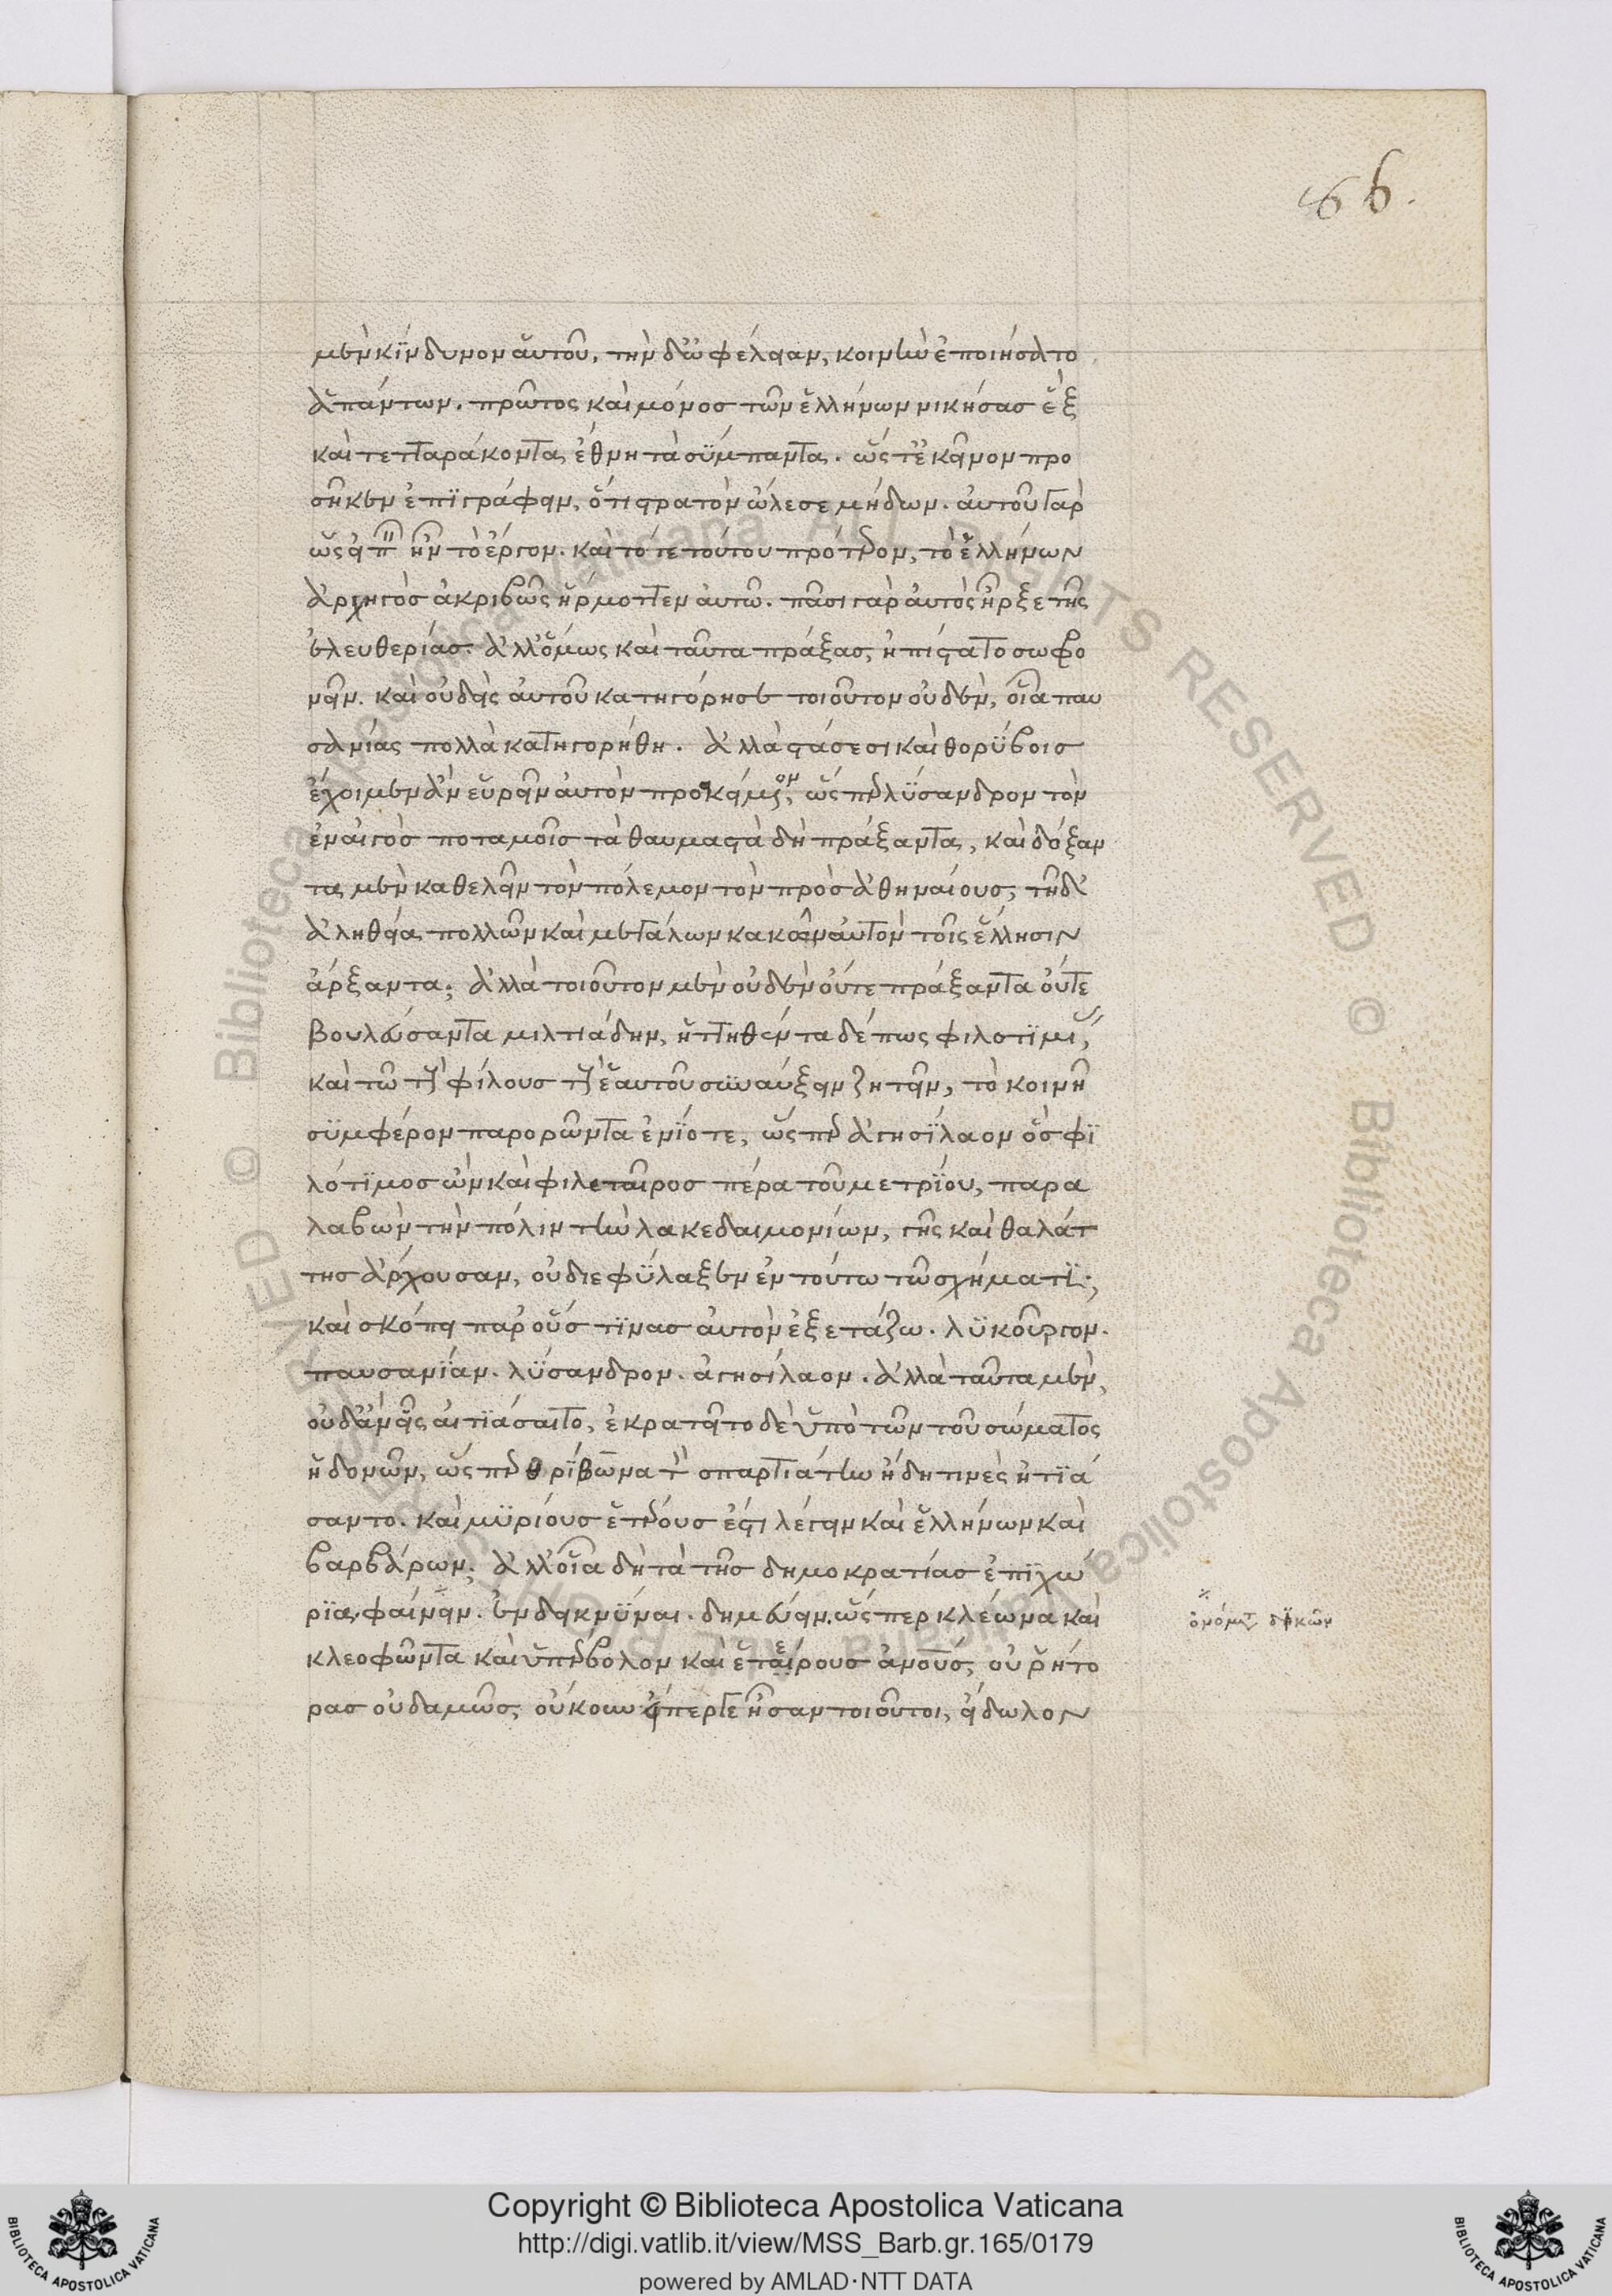 66.
μὲν κίνδυνον αὑτοῦ, τὴν δ' ὠφέλειαν, κοινὴν ἐποιήσατο
ἁπάντων. πρῶτος καὶ μόνος τῶν ἑλλήνων νικήσας ἓξ
καὶ τετταράκοντα ἔθνη τὰ σύμπαντα. ὥστ' ἐκεῖνον προ
σῆκεν ἐπιγράφειν, ὅτι στρατὸν ὤλεσε μήδων. αὐτοῦ γὰρ
ὡς εἰπεῖν ἦν τὸ ἔργον. καὶ τό τε τούτου πρότερον, τὸ ἑλλήνων
ἀρχηγὸς ἀκριβῶς ἥρμοττεν αὐτῶ. πᾶσι γὰρ αὐτὸς ἦρξε τῆς
ἐλευθερίας. ἀλλ' ὅμως καὶ ταῦτα πράξας, ἠπίστατο σωφρο
νεῖν. καὶ οὐδεὶς αὐτοῦ κατηγόρησε τοιοῦτον οὐδὲν, οἷα παυ
σανίας πολλὰ κατηγορήθη. ἀλλὰ στάσεσι καὶ θορύβοις
ἔχοι μὲν ἂν εὑρεῖν αὐτὸν προσκείμενον, ὥσπερ λύσανδρον τὸν
ἐν αἰγὸς ποταμοῖς τὰ θαυμαστὰ δὴ πράξαντα, καὶ δόξαν
τα μὲν καθελεῖν τὸν πόλεμον τὸν πρὸς ἀθηναίους, τῆ δ'
ἀληθείᾳ πολλῶν καὶ μεγάλων κακῶν αὐτὸν τοῖς ἕλλησιν
ἄρξαντα; ἀλλὰ τοιοῦτον μὲν οὐδὲν οὔτε πράξαντα οὔτε
βουλεύσαντα μιλτιάδην, ἡττηθέντα δέ πως φιλοτιμίας,
καὶ τῶ τοὺς φίλους τοὺς ἑαυτοῦ συναύξειν ζητεῖν, τὸ κοινῆ
συμφέρον παρορῶντα ἐνίοτε, ὥσπερ ἀγησίλαον ὃς φι
λότιμος ὢν καὶ φιλεταῖρος πέρα τοῦ μετρίου, παρα
λαβὼν τὴν πόλιν τὴν λακεδαιμονίων, γῆς καὶ θαλάτ
της ἄρχουσαν, οὐ διεφύλαξεν ἐν τούτω τῶ σχήματι;
καὶ σκόπει παρ' οὕς τινας αὐτὸν ἐξετάζω. λυκοῦργον.
παυσανίαν. λύσανδρον. ἀγησίλαον. ἀλλὰ ταῦτα μὲν,
οὐδ' ἂν εἷς αἰτιάσαιτο, ἐκρατεῖτο δὲ ὑπὸ τῶν τοῦ σώματος
ἡδονῶν, ὥσπερ θρίβωνα τὸν σπαρτιάτην ἤδη τινὲς ἠτιά
σαντο. καὶ μυρίους ἑτέρους ἔστι λέγειν καὶ ἑλλήνων καὶ
βαρβάρων; ἀλλ' οἷα δὴ τὰ τῆς δημοκρατίας ἐπιχώ
ρια, φαίνειν. ἐνδεικνύναι. δημεύειν. ὥσπερ κλέωνα καὶ
κλεοφῶντα καὶ ὑπέρβολον καὶ ἑταίρους ἀνοὺς, οὐ ῥήτο
ρας οὐδαμῶς, οὔκουν εἴπερ γε ἦσαν τοιοῦτοι, εἴδωλον